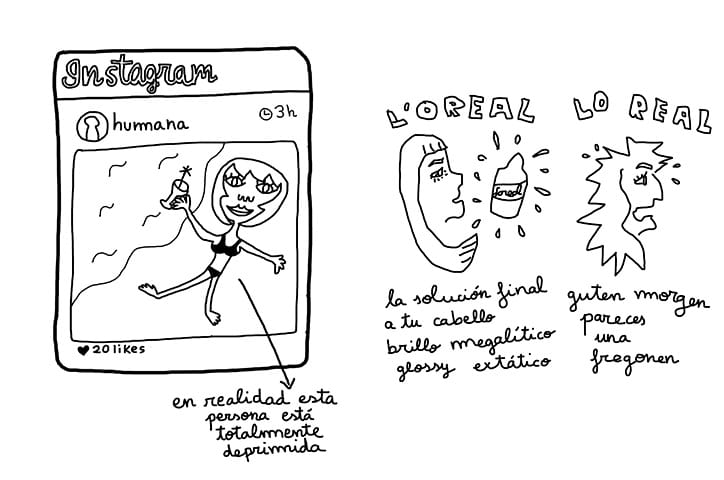 Instagram
humana
3h
20 likes
en realidad esta
persona está
totalmente
deprimida
L'OREAL
loreal
la solución final
a tu cabello
brillo megalítico
glossy extático
LO REAL
guten morgen
pareces
una
fregonen